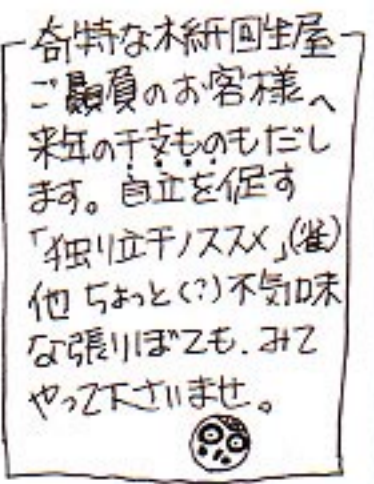 奇特な木紙回生屋
ご贔屓のお客様へ
来年の干支ものもだし
ます。自立を促す
「独り立チノススメ」(雀)
他 ちょっと(?)不気味
な張りぼても、みて
やって下さいませ。